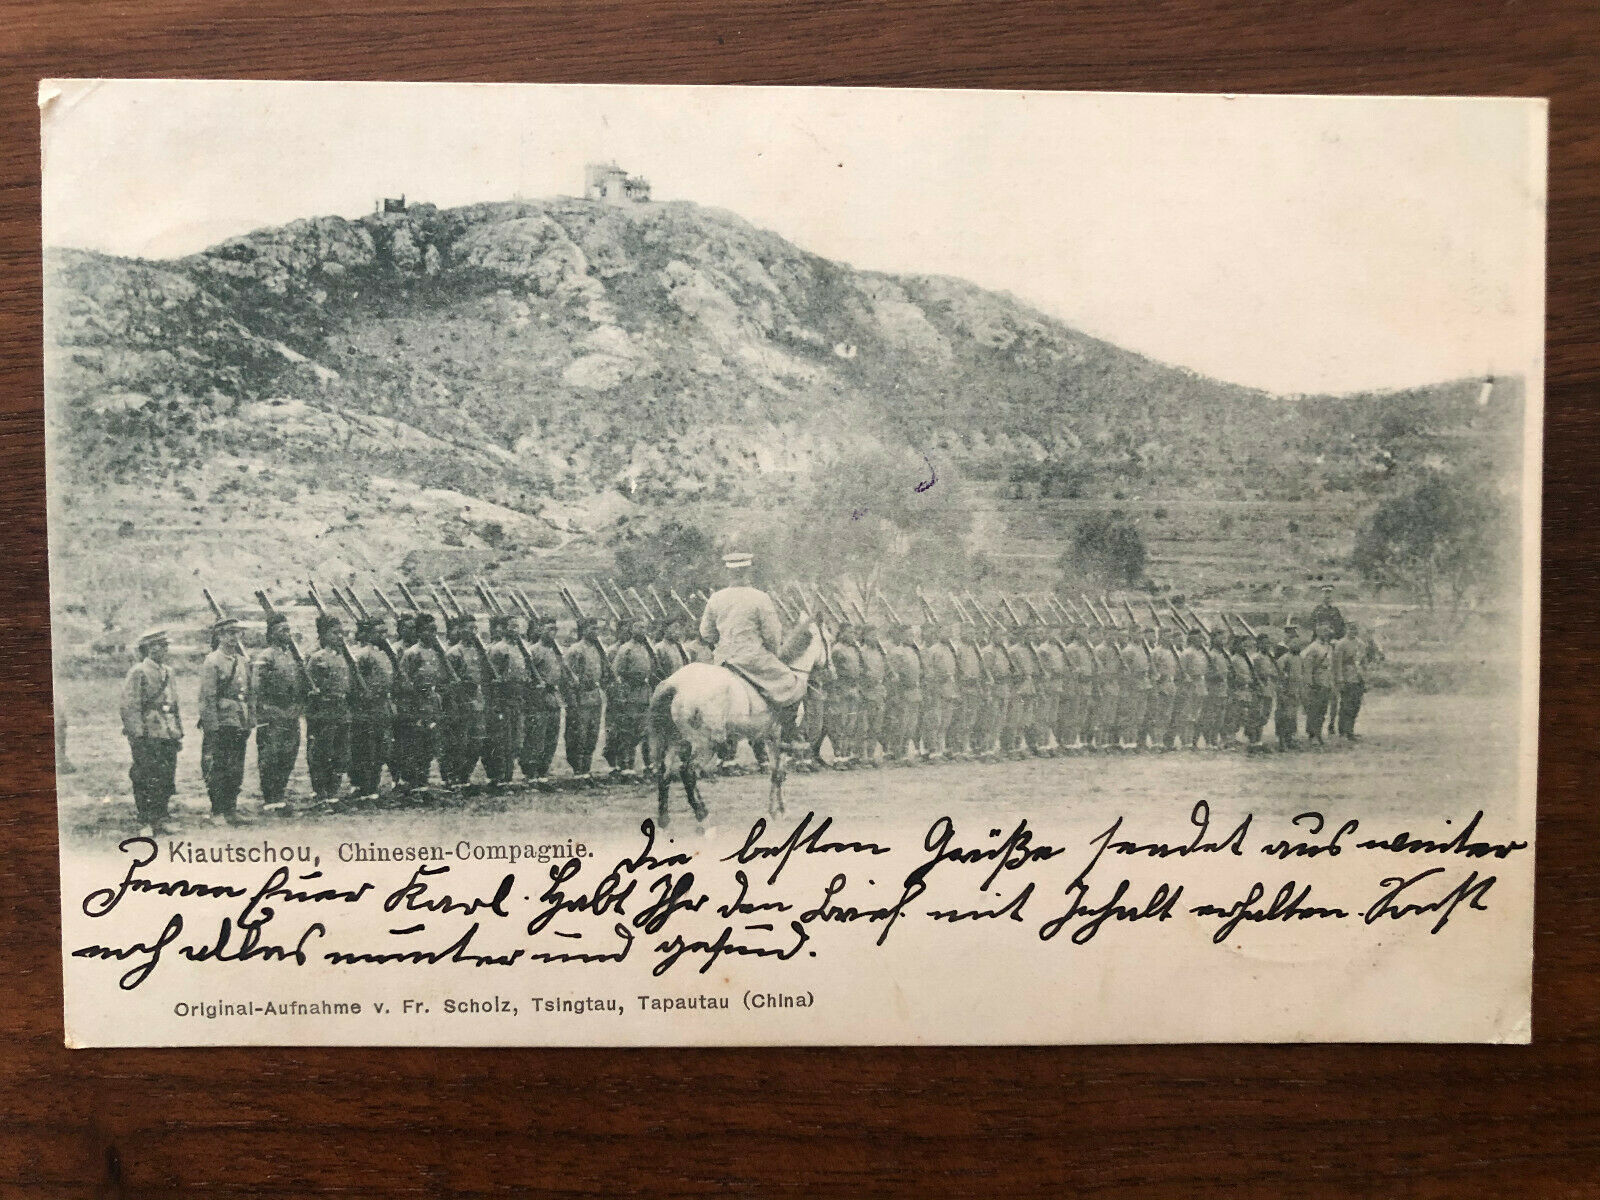 Kiautschou, Chinesen-Compagnie.
Die besten Grüße sendet aus weiter
Ferne Euer Karl. Habt Ihr den Brief mit Inhalt erhalten. Sonst
noch alles munter und gesund.
Original-Aufnahme v. Fr. Scholz, Tsingtau, Tapautau (China)